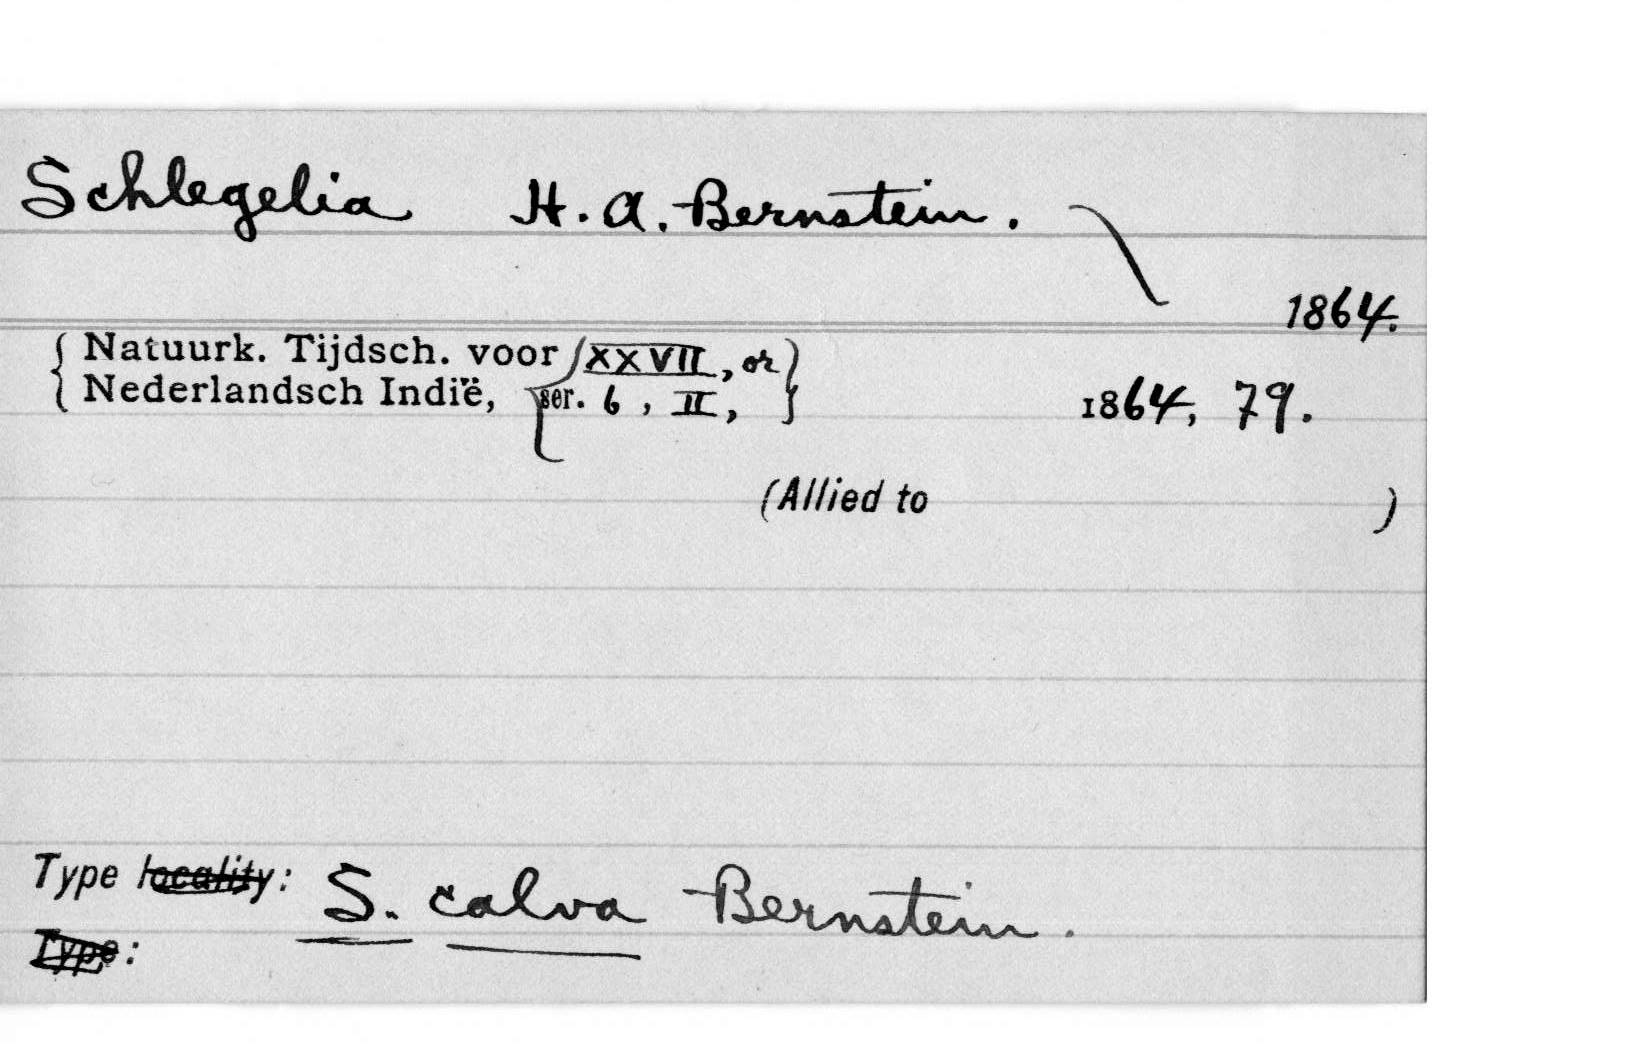 Schlegelia H. A. Bernstein.
1864.
{ Natuurk. Tijdsch. voor { XXVII, or }
{ Nederlandsch Indië, { ser. 6, II, } 1864, 79.
(Allied to )
Type locality: S. calva Bernstein.
Type: